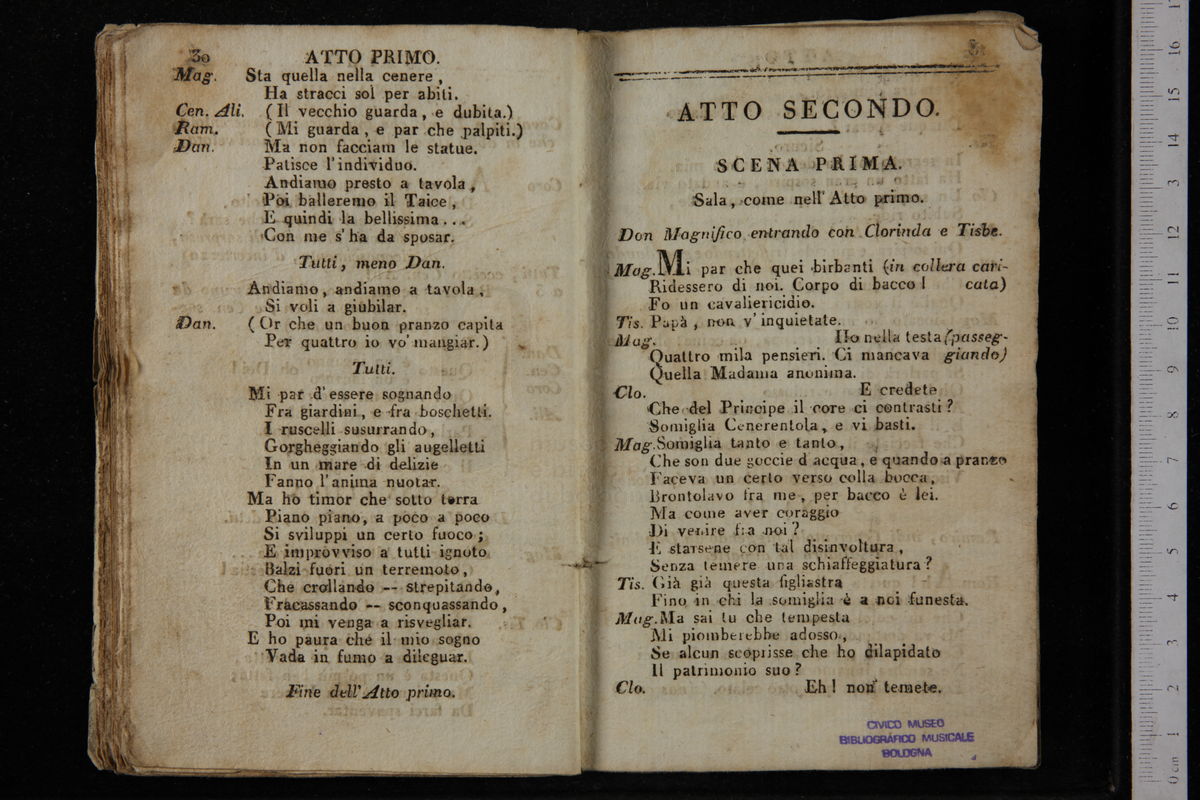 30 ATTO PRIMO.
Mag. Sta quella nella cenere,
Ha stracci sol per abiti.
Cen. Ali. (Il vecchio guarda, e dubita.)
Ram. (Mi guarda, e par che palpiti.)
Dan. Ma non facciam le statue.
Patisce l'individuo.
Andiamo presto a tavola,
Poi balleremo il Taice,
E quindi la bellissima...
Con me s'ha da sposar.
Tutti, meno Dan.
Andiamo, andiamo a tavola,
Si voli a giubilar.
Dan. (Or che un buon pranzo capita
Per quattro io vo' mangiar.)
Tutti.
Mi par d'essere sognando
Fra giardini, e fra boschetti.
I ruscelli susurrando,
Gorgheggiando gli augelletti
In un mare di delizie
Fanno l'anima nuotar.
Ma ho timor che sotto terra
Piano piano, a poco a poco
Si sviluppi un certo fuoco;
E improvviso a tutti ignoto
Balzi fuori un terremoto,
Che crollando -- strepitando,
Fracassando -- sconquassando,
Poi mi venga a risvegliar.
E ho paura che il mio sogno
Vada in fumo a dileguar.
Fine dell'Atto primo.
ATTO SECONDO.
SCENA PRIMA.
Sala, come nell'Atto primo.
Don Magnifico entrando con Clorinda e Tisbe.
Mag. Mi par che quei birbanti (in collera cari-
Ridessero di noi. Corpo di bacco! cata)
Fo un cavaliericidio.
Tis. Papà, non v'inquietate.
Mag. Ho nella testa (passeg-
Quattro mila pensieri. Ci mancava giando)
Quella Madama anonima.
Clo. E credete
Che del Principe il core ci contrasti?
Somiglia Cenerentola, e vi basti.
Mag. Somiglia tanto e tanto,
Che son due goccie d'acqua, e quando a pranzo
Faceva un certo verso colla bocca,
Brontolavo fra me, per bacco è lei.
Ma come aver coraggio
Di venire fra noi?
E starsene con tal disinvoltura,
Senza temere una schiaffeggiatura?
Tis. Già già questa figliastra
Fino in chi la somiglia è a noi funesta.
Mag. Ma sai tu che tempesta
Mi piomberebbe adosso,
Se alcun scoprisse che ho dilapidato
Il patrimonio suo?
Clo. Eh! non temete.
CIVICO MUSEO
BIBLIOGRAFICO MUSICALE
BOLOGNA
0 cm 1 2 3 4 5 6 7 8 9 10 11 12 13 14 15 16 17